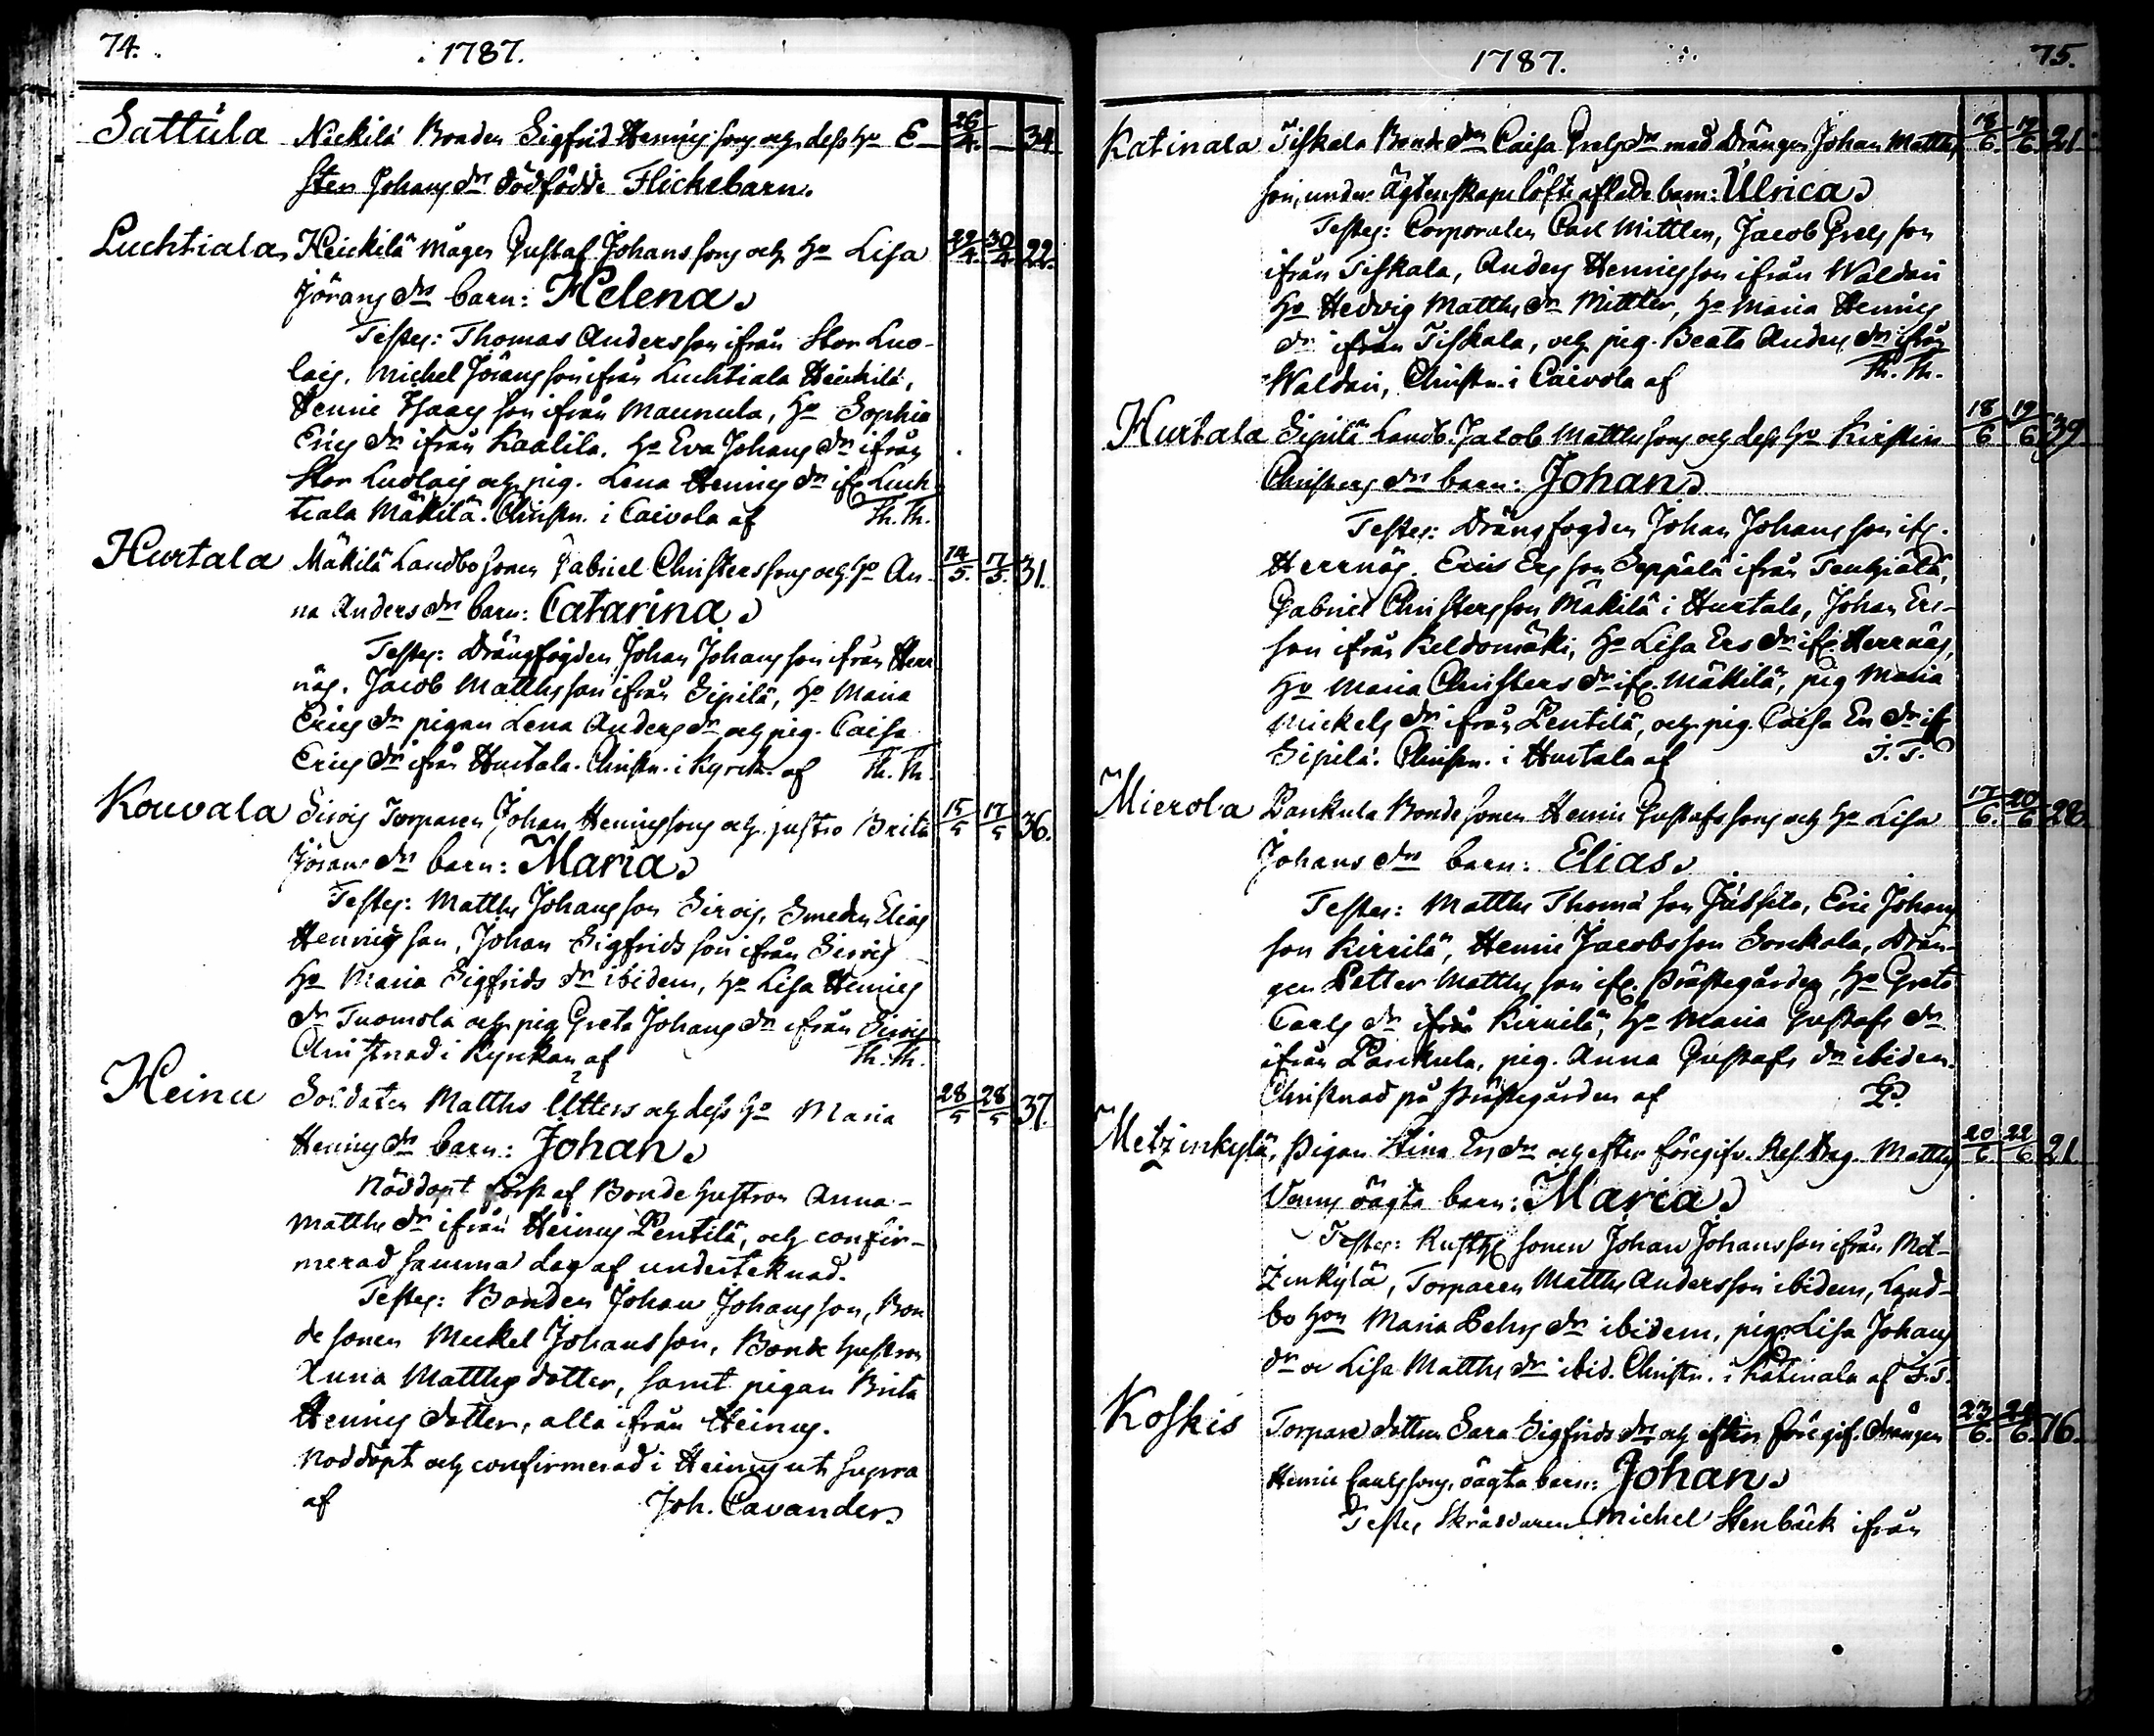 74. 1787.
Sattula Nickilä Bonden Sigfrid Henrics sons och dess H:o E- 26/4. — 34
sten Johans dr dödfödde Flickebarn.
Luchtiala, Heickilä Mågen Gustaf Johans sons och H:o Lisa 29/4. 30/4. 22.
Jörans drs barn: Helena.
Testes: Thomas Andersson ifrån Stor Luo-
lais, Michel Jörans son ifrån Luchtiala Heickilä,
Henric Isaacs son ifrån Maunula, H:o Sophia
Erics dr ifrån Kaalila, H:o Eva Johans dr ifrån
Stor Luolais och pig. Lena Henrics dr ifr. Luch-
tiala Mäkilä. Christn. i Caivola af Th. Th.
Hurtala Mäkilä Landbo sonen Gabriel Christers sons och H:o An- 14/5. 17/5. 31.
na Anders drs barn: Catarina.
Testes: Drängfogden Johan Johans son ifrån Herr-
näs. Jacob Matths son ifrån Sipilä, H:o Maria
Erics dr pigan Lena Anders dr och pig. Caisa
Erics dr ifrån Hurtala. Christn. i Kyrck. af Th. Th.
Kouvala Sirois Torparen Johan Henrics sons och justro Brita 15/5 17/5 36.
Jörans drs barn: Maria.
Testes: Matths Johans son Sirois, Smeden Elias
Henrics son, Johan Sigfrids son ifrån Sirois
H:o Maria Sigfrids dr ibidem, H:o Lisa Henrics
dr Tuomola och pig Greta Johans dr ifrån Sirois
Christnad i Kyrkan af Th. Th.
Heinu Soldaten Matths Utters och dess H:o Maria 28/5 28/5 37.
Henrics drs barn: Johan.
Nöddopt först af Bonde hustron Anna
Matths dr ifrån Heinus Pentilä, och confir-
merad samma dag af undertecknad.
Testes: Bonden Johan Johans son, Bon-
de sonen Mickel Johans son, Bonde hustron
Anna Matths dotter, samt pigan Brita
Henrics dotter, alla ifrån Heinus.
Noddopt och confirmerad i Heinus ut supra
af Joh. Cavander
1787. 75.
Katinala Tiskala Bonde drn Caisa Grels dr med Drängen Johan Matths 18/6. 19/6. 21
son, under ägtenskaps löfte aflade barn: Ulrica.
Testes: Corporalen Carl Mittler, Jacob Grels son
ifrån Tiskala, Anders Henrics son ifrån Waldari
H:o Hedvig Matths dr Mittler, H:o Maria Henrics
dr ifrån Tiskala, och pig. Beata Anders dr ifrån
Waldari, Christn. i Caivola af Th. Th.
Hurtala Sipilä Landb. Jacob Matths sons och dess H:o Kirstin 18/6. 19/6 39
Christers drs barn: Johan.
Testes: Drängfogden Johan Johans son ifr.
Herrnäs. Eric Ers son Seppälä ifrån Tenhiälä,
Gabriel Christers son Mäkilä i Hurtala, Johan Ers
son ifrån Keldomäki, H:o Lisa Ers dr ifr. Herrnäs,
H:o Maria Christers dr ifr. Mäkilä, pig Maria
Mickels dr ifrån Pentilä, och pig. Caisa Ers dr ifr
Sipilä. Christn. i Hurtala af J. T.
Mierola Pankula Bonde sonen Henric Gustafs sons och H:o Lisa 17/6. 20/6 28
Johans drs barn: Elias.
Testes: Matths Thomæ son Jussila, Eric Johans
son Kirrilä, Henric Jacobs son Sonkala, Drän-
gen Petter Matths son ifr. Prästegården, H:o Greta
Carls dr ifrån Kirrilä, H:o Maria Gustafs dr
ifrån Pankula, pig. Anna Gustafs dr ibidem.
Christnad på Prästegården af
Metzinkylä, Pigan Stina Ers drs och efter föregifv. Ref. Drag. Matths 20/6. 22/6 21
oägta barn: Maria.
Testes: Rusth. sonen Johan Johans son ifrån Met-
zinkylä, Torparen Matths Andersson ibidem, Land-
bo H:on Maria Pehrs dr ibidem, pig. Lisa Johans
dr o Lisa Matths dr ibid. Christn. i Katinala af J. T.
Koskis Torpare dottren Sara Sigfrids drs och efter föregif. drängen 23/6. 24/6. 76.
Henric Carls sons, oägta barn: Johan.
Testes Skräddaren Michel Stenbäck ifrån